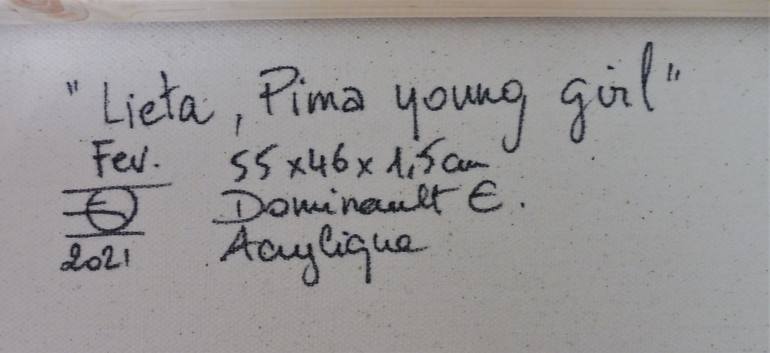 "Lieta, Pima young girl"
Fev. 55x46x1,5cm
Dominault E.
2021 Acrylique